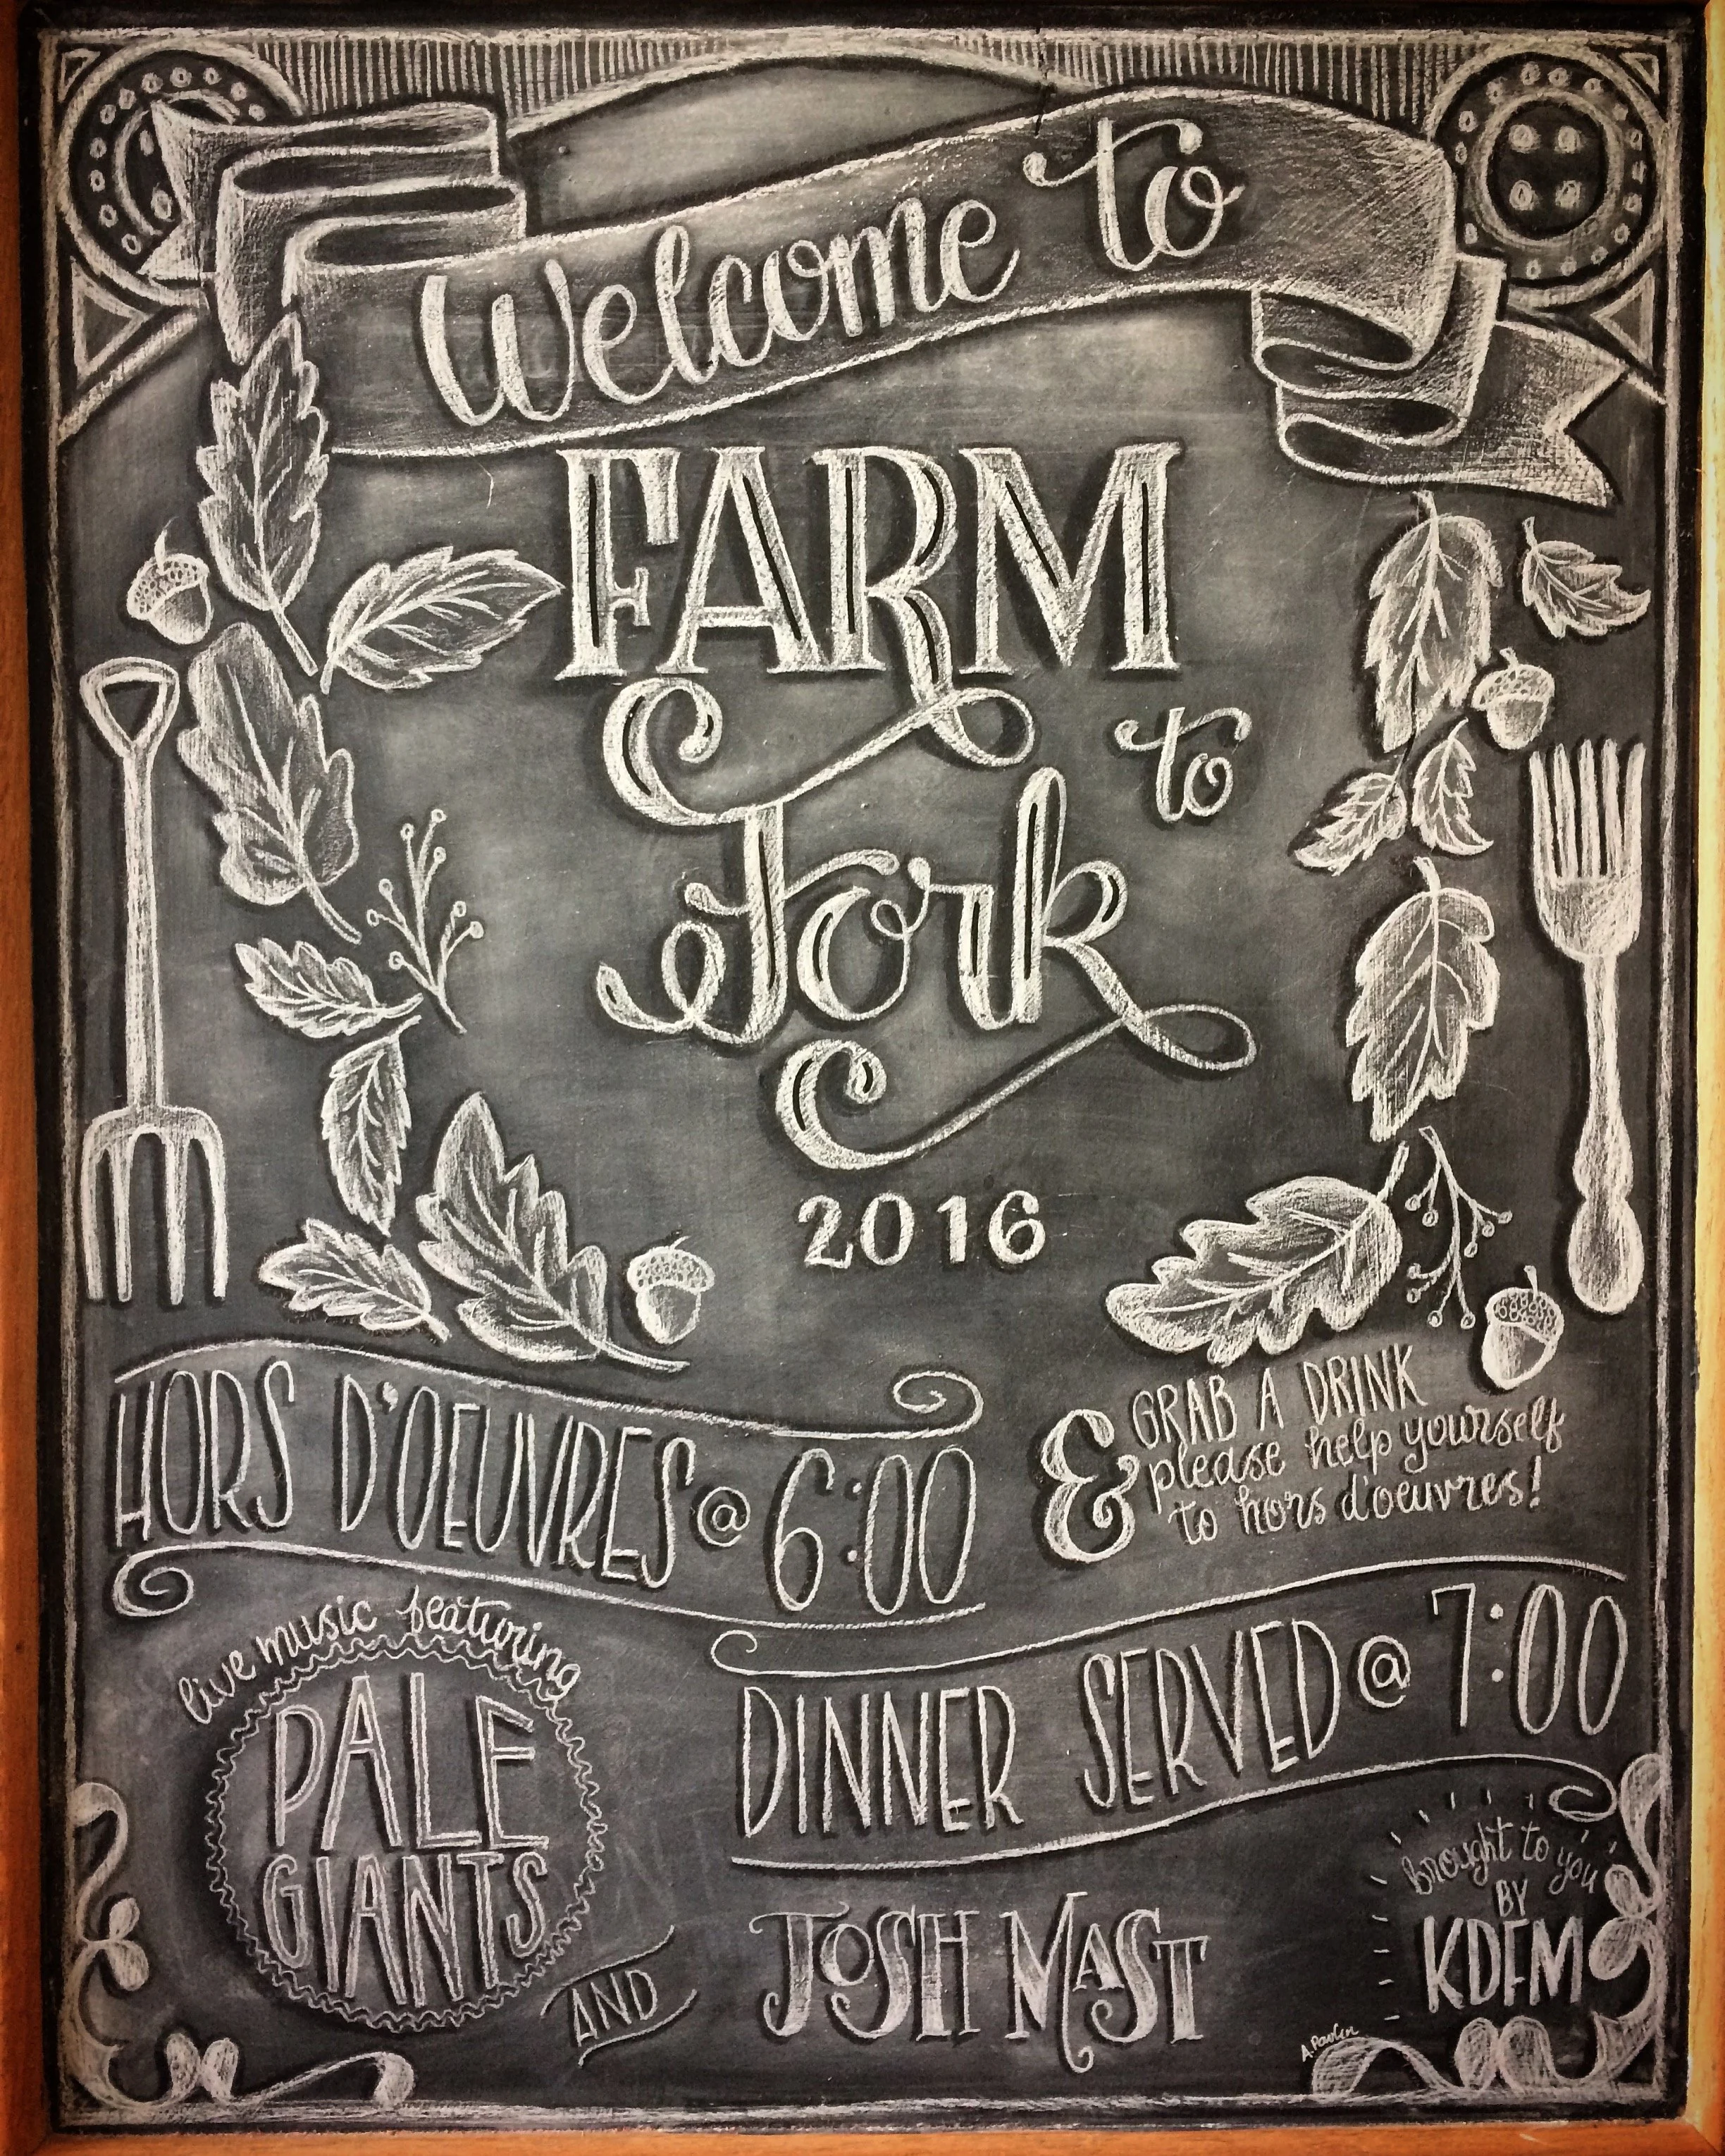 Welcome to
FARM
to
Fork
2016
HORS D'OEUVRES @ 6:00
& GRAB A DRINK
please help yourself
to hors d'oeuvres!
live music featuring
PALE
GIANTS
AND
JOSH MAST
DINNER SERVED @ 7:00
brought to you
BY
KDFM